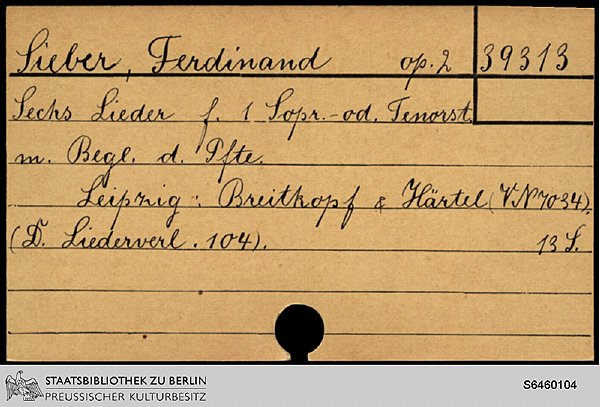 Sieber, Ferdinand op. 2 39313
Sechs Lieder f. 1 Sopr.-od. Tenorst.
m. Begl. d. Pfte.
Leipzig: Breitkopf & Härtel (V.N 7034).
(D. Liederverl. 104). 13 S.
STAATSBIBLIOTHEK ZU BERLIN
PREUSSISCHER KULTURBESITZ
S6460104